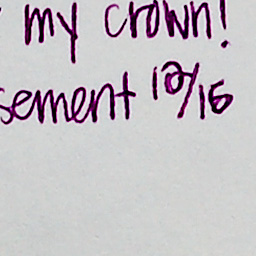 my crown!
sement 12/15